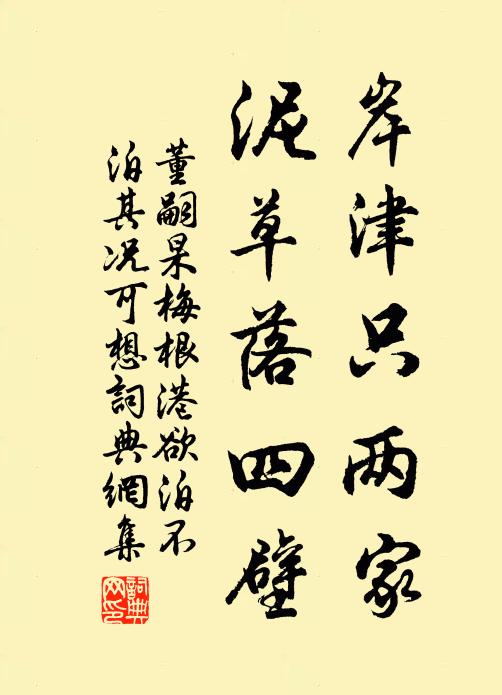 岸津只两家
泥草落四壁
董嗣杲梅根港欲泊不
泊其况可想詞典網集
詞典网印